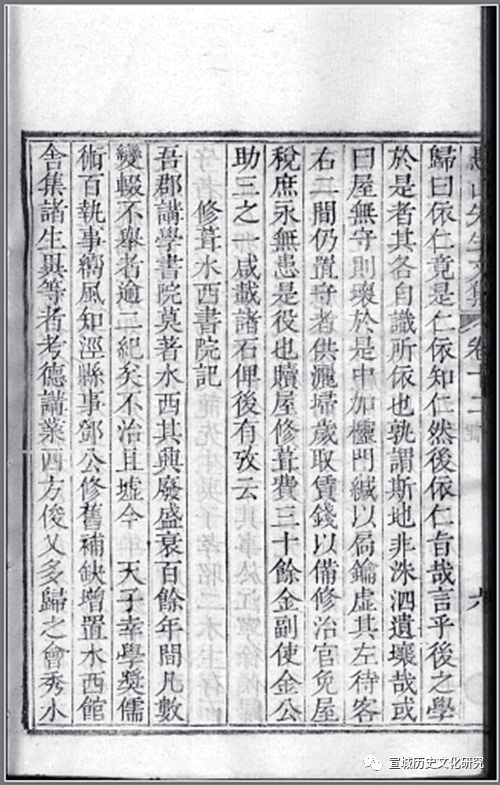 愚山先生文集 卷十二 六
歸曰依仁竟是仁依知仁然後依仁旨哉言乎後之學
於是者其各自識所依也孰謂斯地非洙泗遺壤哉或
曰屋無守則壞於是中加櫺門緘以扃鑰虛其左待客
右二間仍置守者供灑埽歲取賃錢以備修治官免屋
稅庶永無患是役也贖屋修葺費三十餘金副使金公
助三之一咸載諸石俾後有攷云
修葺水西書院記
吾郡講學書院莫著水西其興廢盛衰百餘年間凡數
變輟不舉者逾二紀矣不治且墟今 天子幸學奬儒
術百執事嚮風知涇縣事鄧公修舊補缺增置水西館
舍集諸生異等者考德講業西方俊乂多歸之會秀水
宣城历史文化研究